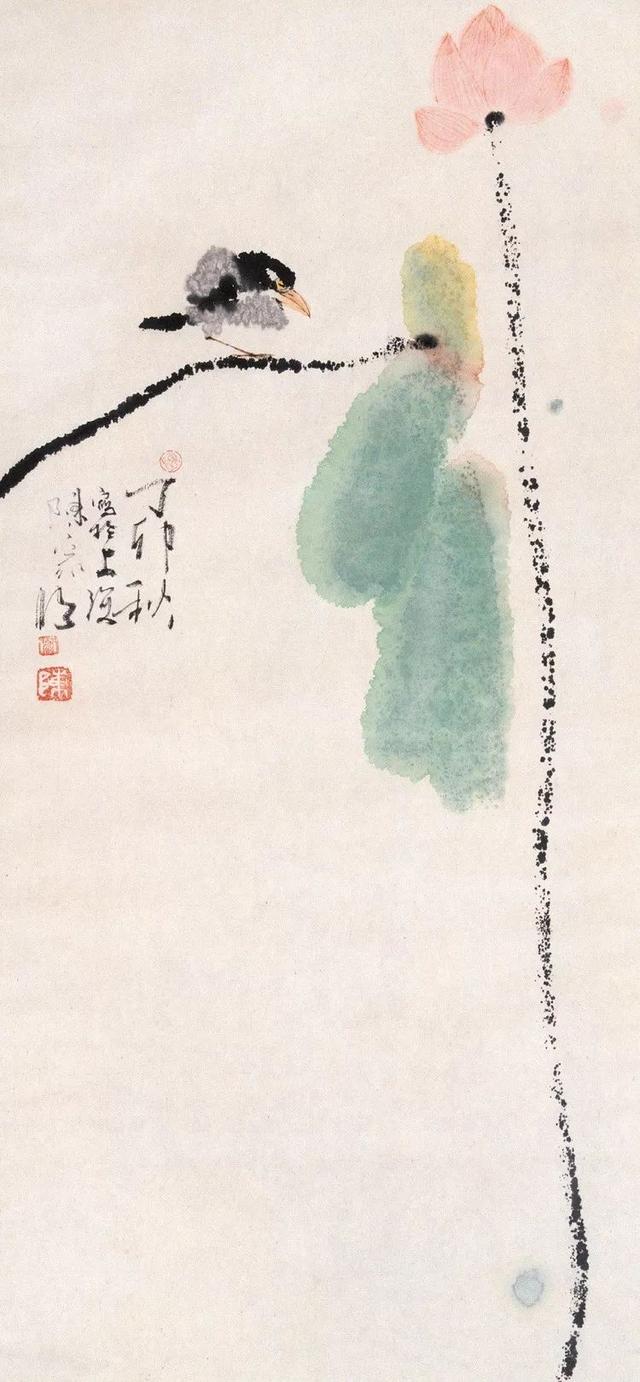 丁卯秋
寫於上海
陳家泠
陳